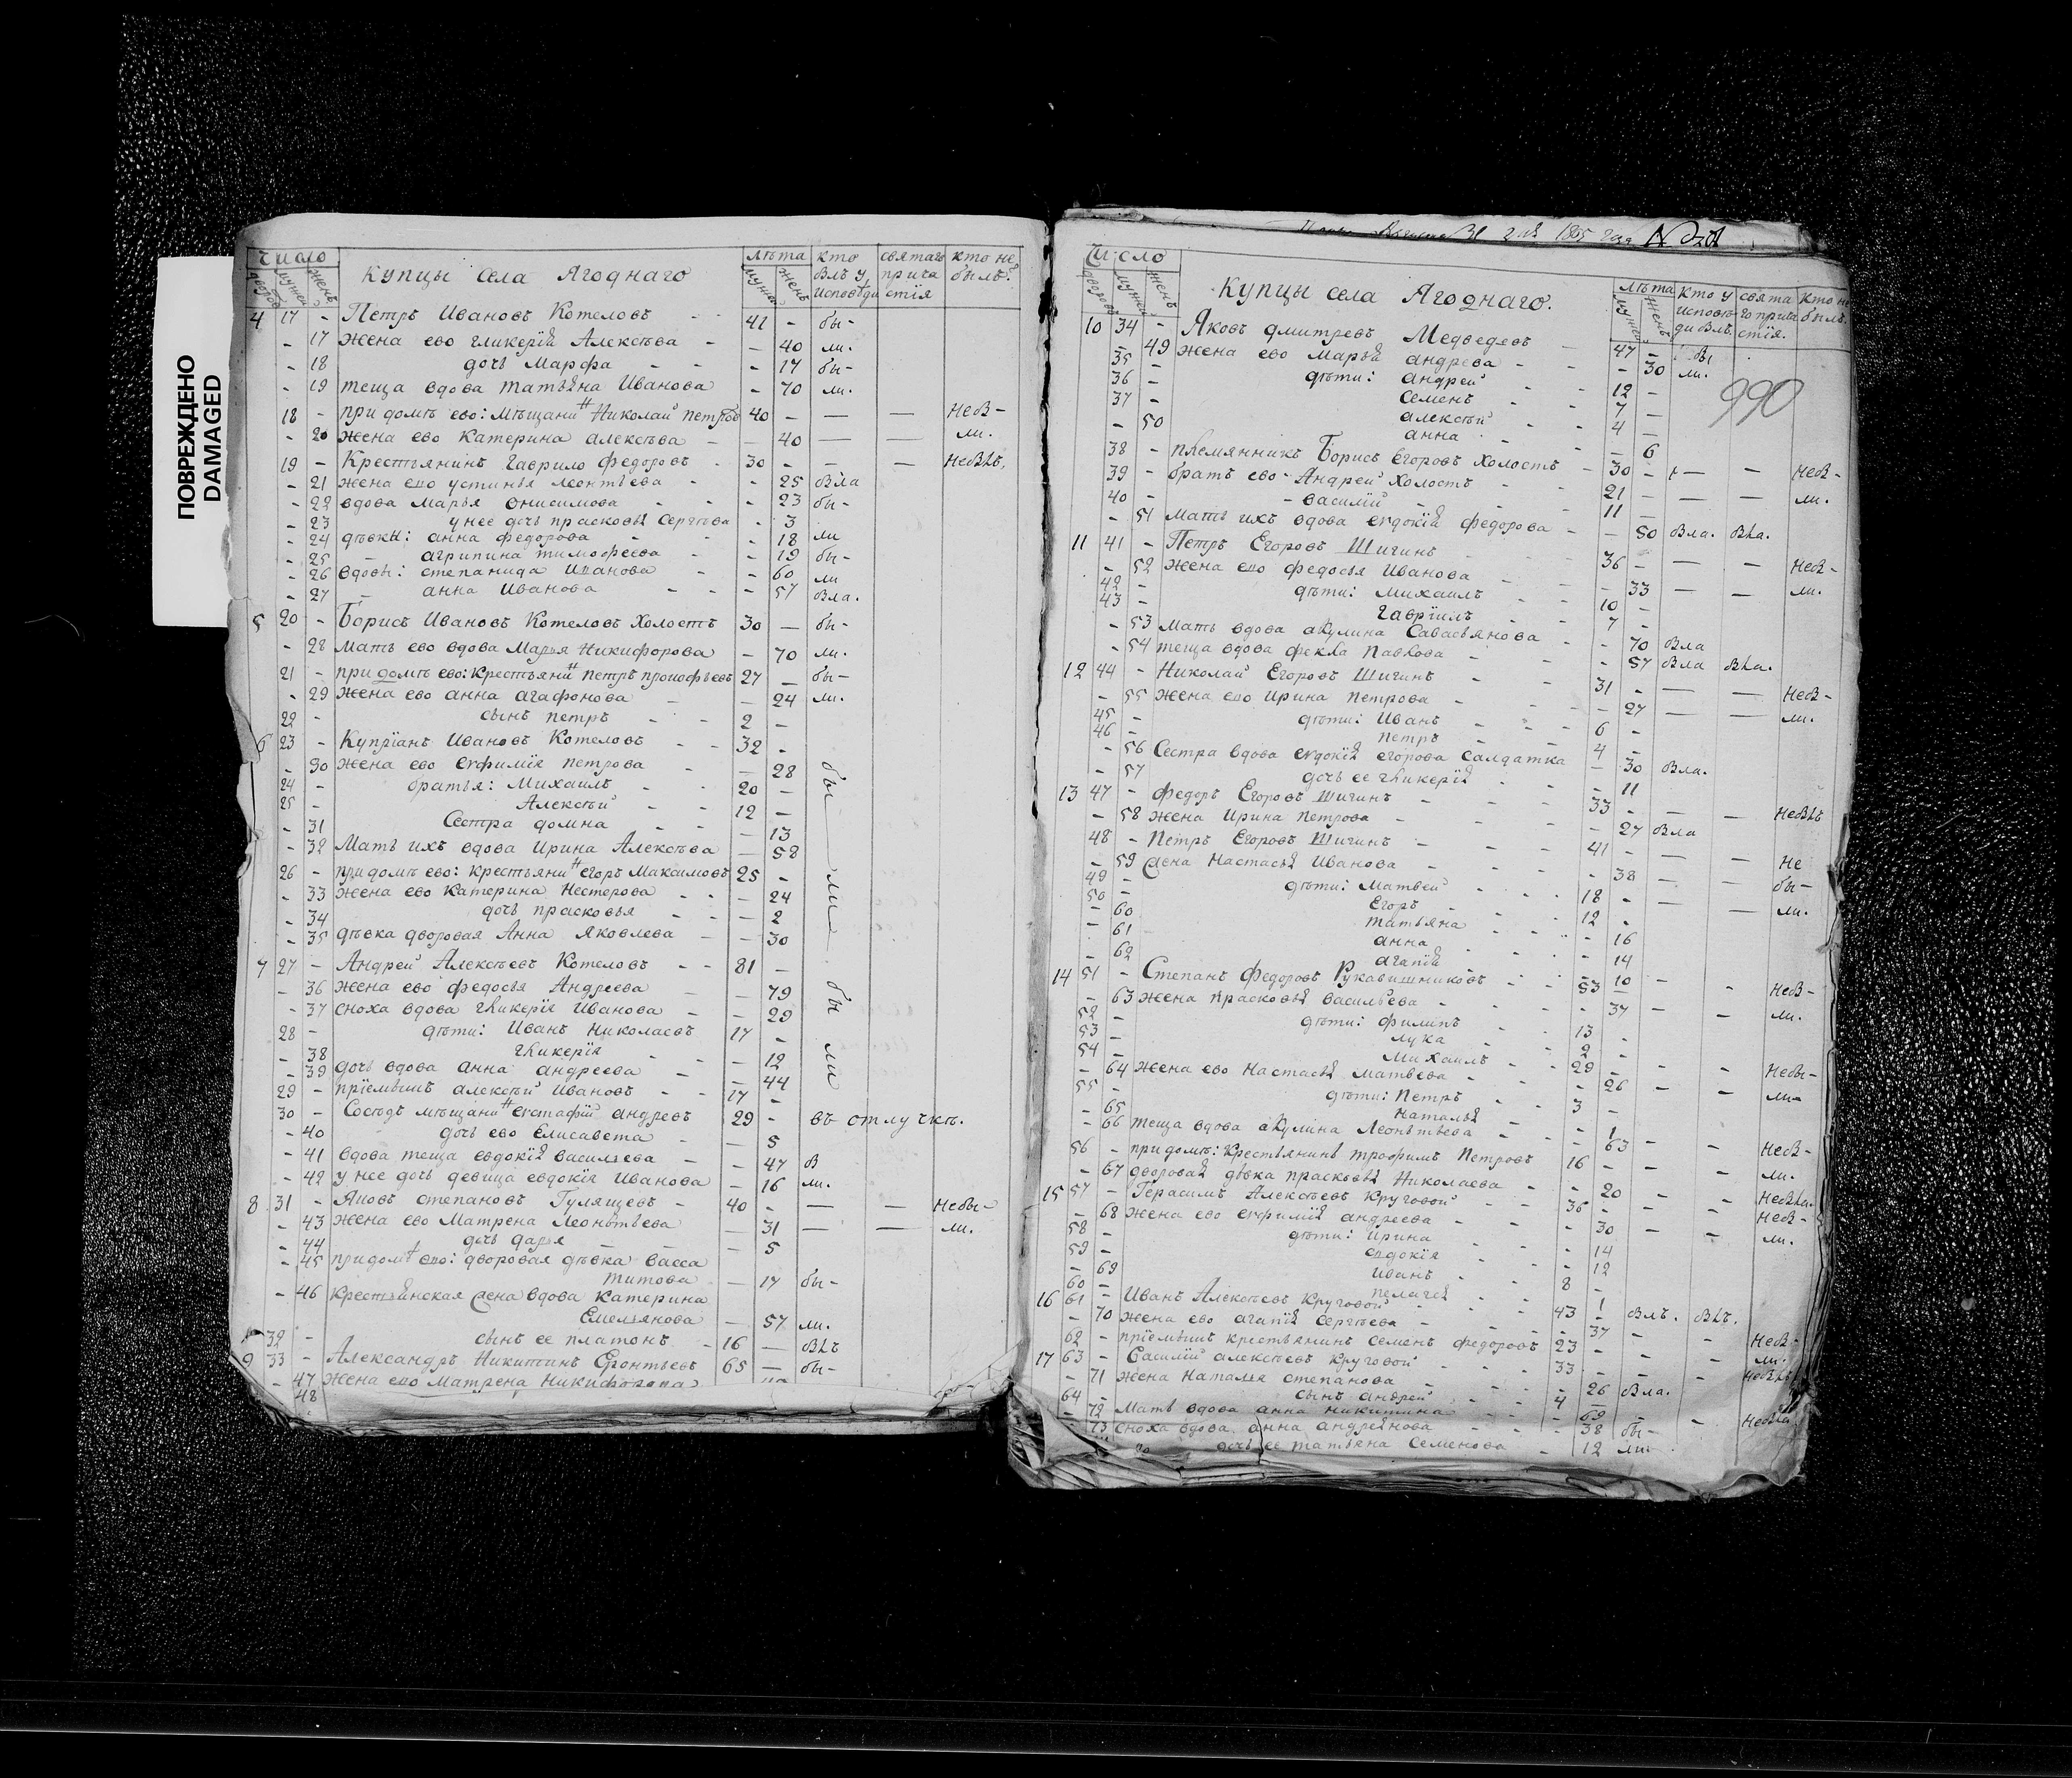 ПОВРЕЖДЕНО
DAMAGED
Число Купцы села Ягоднаго Лѣта кто былъ у исповѣди святаго причастія кто не былъ.
дворов мужеска женска мужеска женска
4 17 - Петръ Ивановъ Котеловъ 41 - бы-
- 17 жена ево гликерїя Алексѣва - 40 ли.
- 18 дочь Марфа - 17 бы-
- 19 теща вдова татьяна Иванова - 70 ли.
18 - при домѣ ево: мѣщанинъ Николай Петровъ 40 - — — Небы-
- 20 жена ево Катерина алексѣва - 40 — — ли.
19 - Крестьянинъ гаврило федоровъ 30 - - — Небылъ.
- 21 жена ево устинья леонтьева - 25 была
- 22 вдова марья онисимова - 23 бы-
- 23 у нее дочь прасковья Сергѣева - 3
- 24 дѣвки: анна федорова - 18 ли
- 25 - агрипина тимофеева - 19 бы-
- 26 вдовы: степанида Иванова - 60 ли
- 27 - анна Иванова - 57 была.
5 20 - Борисъ Ивановъ Котеловъ холостъ 30 — бы-
- 28 мать ево вдова Марья Никифорова - 70 ли.
21 - при домѣ ево: крестьянинъ петръ прокофьевъ 27 - бы-
- 29 жена ево анна агафонова - 24 ли.
22 - сынъ петръ 2 -
6 23 - Купрїанъ Ивановъ Котеловъ 32 -
- 30 жена ево евфимїя петрова — 28 бы
24 - братья: Михаилъ 20 —
25 - Алексѣй 12 —
- 31 Сестра домна - 13
- 32 Мать ихъ вдова Ирина Алексѣва — 58
26 - при домѣ ево: крестьянинъ егоръ Максимовъ 25 -
- 33 жена ево Катерина Нестерова — 24 ли
- 34 дочь прасковья — 2
- 35 дѣвка дворовая Анна Яковлева — 30
7 27 - Андрей Алексѣевъ Котеловъ 81 —
- 36 жена ево федосья Андреева — 79 бы
- 37 сноха вдова гликерїя Иванова — 29
28 - дѣти: Иванъ Николаевъ 17 -
- 38 гликерїя - 12 ли
- 39 дочь вдова анна андреева — 44
29 - прїемышъ алексѣй Ивановъ 17 -
30 - Сосѣдъ мѣщанинъ евстафїй андревъ 29 - въ отлучкѣ.
- 40 дочь ево Елисавета — 5
- 41 вдова теща евдокїя васильева - 47 в
- 42 у нее дочь девица евдокїя Иванова - 16 ли.
8 31 - Яковъ степановъ Гулящевъ 40 - — — Небы-
- 43 жена ево Матрена Леонтьева — 31 — — ли.
- 44 дочь дарья — 5
- 45 при домѣ ево: дворовая дѣвка васса
титова — 17 бы-
- 46 крестьянская жена вдова Катерина
Емельянова — 57 ли.
32 - сынъ ее платонъ 16 — былъ
9 33 - Александръ Никитинъ Ѳронтьевъ 65 — бы-
- 47 жена ево матрена никифорова
48
1805 года
Число Купцы села Ягоднаго. Лѣта кто у исповѣди былъ. святаго причастїя. кто не былъ.
дворов мужеска женска мужеска женска
990
10 34 - Яковъ дмитревъ Медведевъ 47 - бы
- 49 жена ево Марья андрева - 30 ли.
35 - дѣти: андрей 12 -
36 - семенъ 7 —
37 - алексѣй 4 —
- 50 анна — 6
38 - племянникъ Борисъ Егоровъ холостъ 30 - — — небы-
39 - братъ ево - Андрей холостъ 21 - — — ли.
40 - - василїй 11 —
- 51 мать ихъ вдова евдокїя федорова - 50 была. была.
11 41 - Петръ Егоровъ Шигинъ 36 - — — Небы-
- 52 жена ево федосья Иванова - 33 — — ли.
42 - дѣти: михаилъ 10 -
43 - гаврїилъ 7 -
- 53 мать вдова акулина Савастьянова - 70 была
- 54 теща вдова фекла павлова - 57 была была.
12 44 - Николай Егоровъ Шигинъ 31 - — — Небы-
- 55 жена ево Ирина петрова - 27 — — ли.
45 - дѣти: Иванъ 6 -
46 - петръ 4 -
- 56 Сестра вдова евдокїя егорова салдатка — 30 была.
- 57 дочь ее гликерїя - 11
13 47 - федоръ Егоровъ Шигинъ 33 - — — Небылъ
- 58 жена Ирина петрова - 27 была
48 - Петръ Егоровъ Шигинъ 41 - — — Не
- 59 жена Настасья Иванова - 38 — — бы-
49 - дѣти: матвей 18 - — — ли.
50 - Егоръ 12 -
- 60 татьяна - 16
- 61 анна - 14
- 62 агапїя - 10
14 51 - Степанъ федоровъ Рукавишниковъ 53 — - - Небы-
- 63 жена прасковья васильева - 37 — - ли.
52 - дѣти: филипъ 13 -
53 - лука 9 -
54 - михаилъ 29 - - - Небы-
- 64 жена ево Настасья матвева - 26 - - ли-
55 - дѣти: Петръ 3 -
- 65 Наталья - 1
- 66 теща вдова акулина леонтьева - 63 - - Небы-
56 - при домѣ: крестьянинъ трофимъ Петровъ 16 - - - ли.
- 67 дворовая дѣвка прасковья Николаева - 20 - - Небыла.
15 57 - Герасимъ Алексѣевъ Круговой 36 - - - Небы-
- 68 жена ево евфимїя андреева - 30 - - ли.
58 - дѣти: Ирина - 14
59 - евдокїя - 12
- 69 Иванъ 8 -
60 - пелагея - 1
16 61 - Иванъ Алексѣевъ Круговой 43 - былъ. былъ.
- 70 жена ево агапїя сергѣева - 37 - - Небы-
62 - прїемышъ крестьянинъ семенъ федоровъ 23 - - - ли.
17 63 - Василїй алексѣевъ Круговой 33 - - - небылъ
- 71 жена Наталья степанова - 26 была.
64 - сынъ андрей 4 —
- 72 Мать вдова анна никитина - 69 - - Небыла
- 73 сноха вдова анна андреянова - 38 бы-
дочь ее татьяна семенова - 12 ли